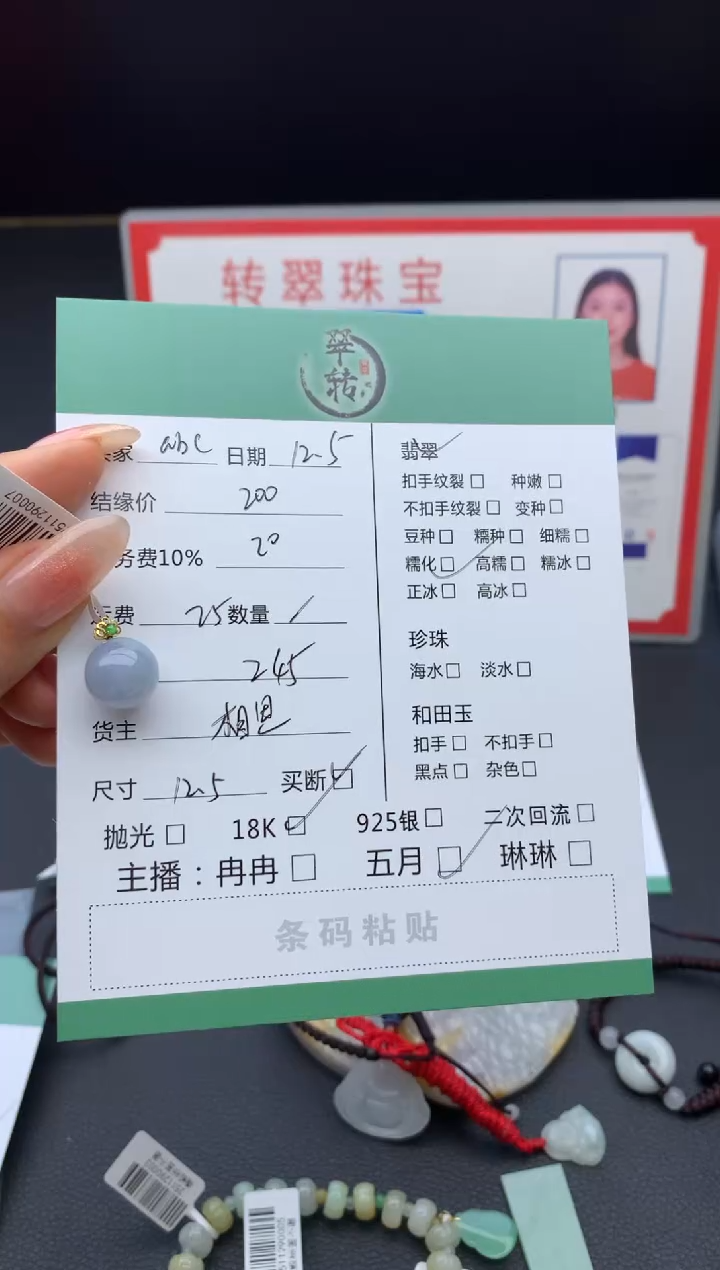 转翠珠宝
翠转
家 abc 日期 12.5
结缘价 200
务费10% 20
费 25 数量 /
245
货主 相思
尺寸 12.5 买断☑
抛光□ 18K☑ 925银□ 二次回流□
主播：冉冉□ 五月☑ 琳琳□
条码粘贴
翡翠✓
扣手纹裂□ 种嫩□
不扣手纹裂□ 变种□
豆种□ 糯种□ 细糯□
糯化☑ 高糯□ 糯冰□
正冰□ 高冰□
珍珠
海水□ 淡水□
和田玉
扣手□ 不扣手□
黑点□ 杂色□
511290007